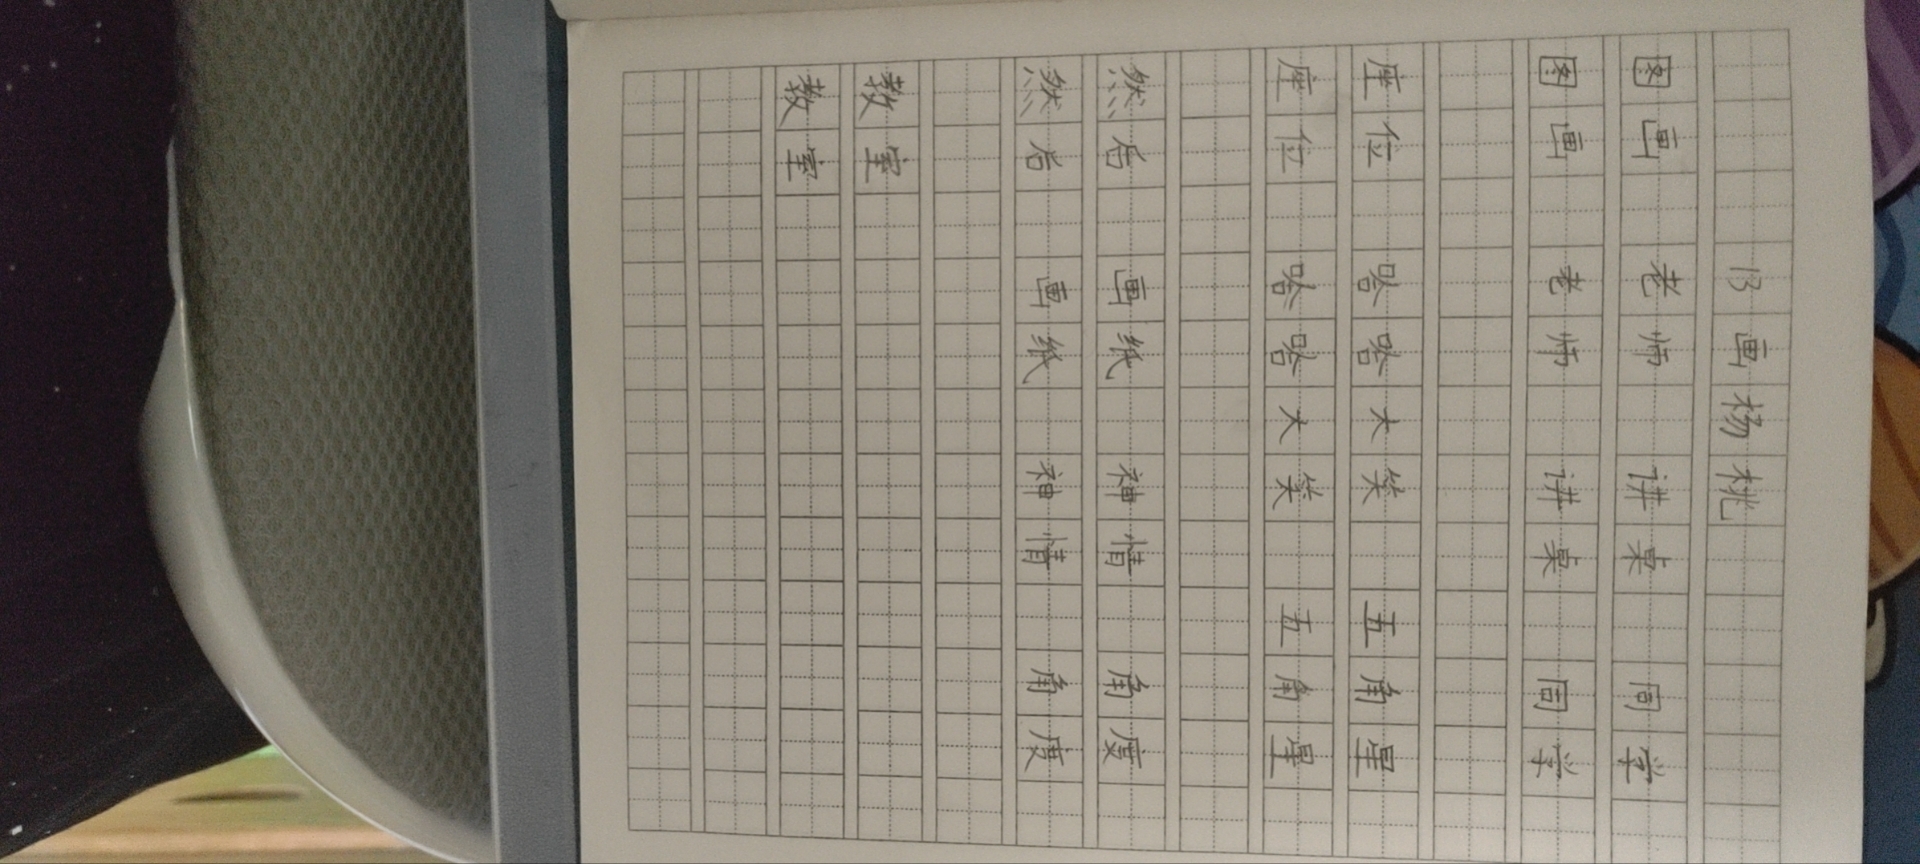 13 画杨桃
图画 老师 讲桌 同学
图画 老师 讲桌 同学
座位 咯咯大笑 五角星
座位 咯咯大笑 五角星
然后 画纸 神情 角度
然后 画纸 神情 角度
教室
教室